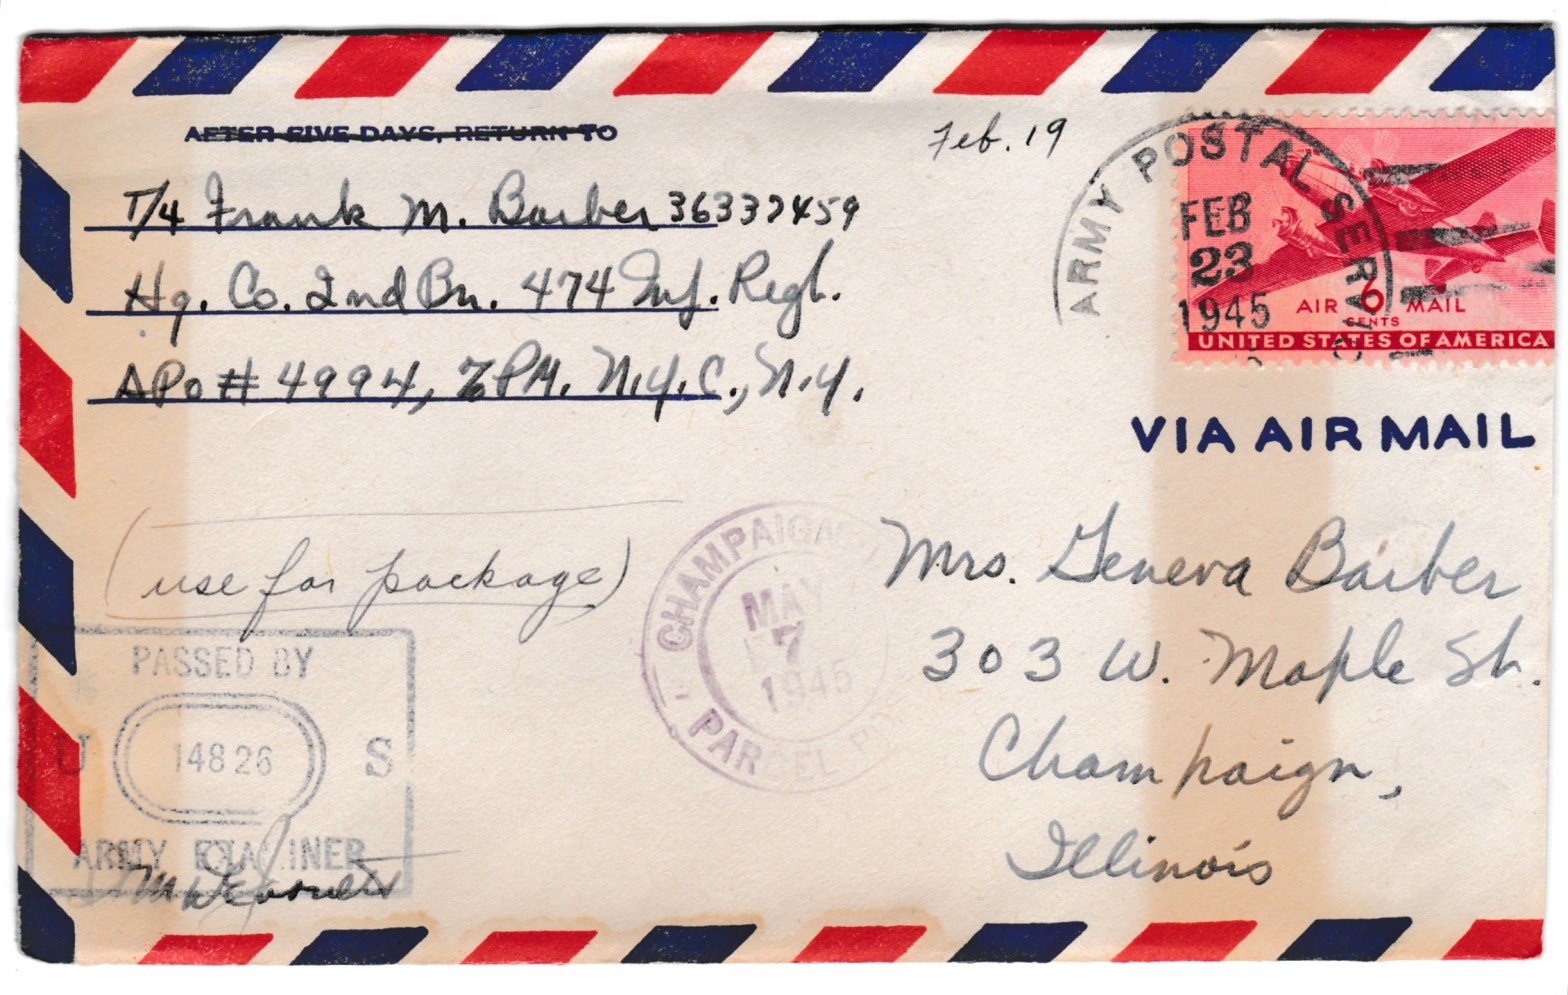 AFTER FIVE DAYS, RETURN TO
Feb. 19
T/4 Frank M. Barber 36337459
Hq. Co. 2nd Bn. 474 Inf. Regt.
APO # 4994, % PM. N.Y.C., N.Y.
ARMY POSTAL SERVICE
FEB
23
1945
AIR 6 MAIL
CENTS
UNITED STATES OF AMERICA
VIA AIR MAIL
(use for package)
CHAMPAIGN
MAY
7
1945
PARCEL
Mrs. Geneva Barber
303 W. Maple St.
Champaign,
Illinois
PASSED BY
U 14826 S
ARMY EXAMINER